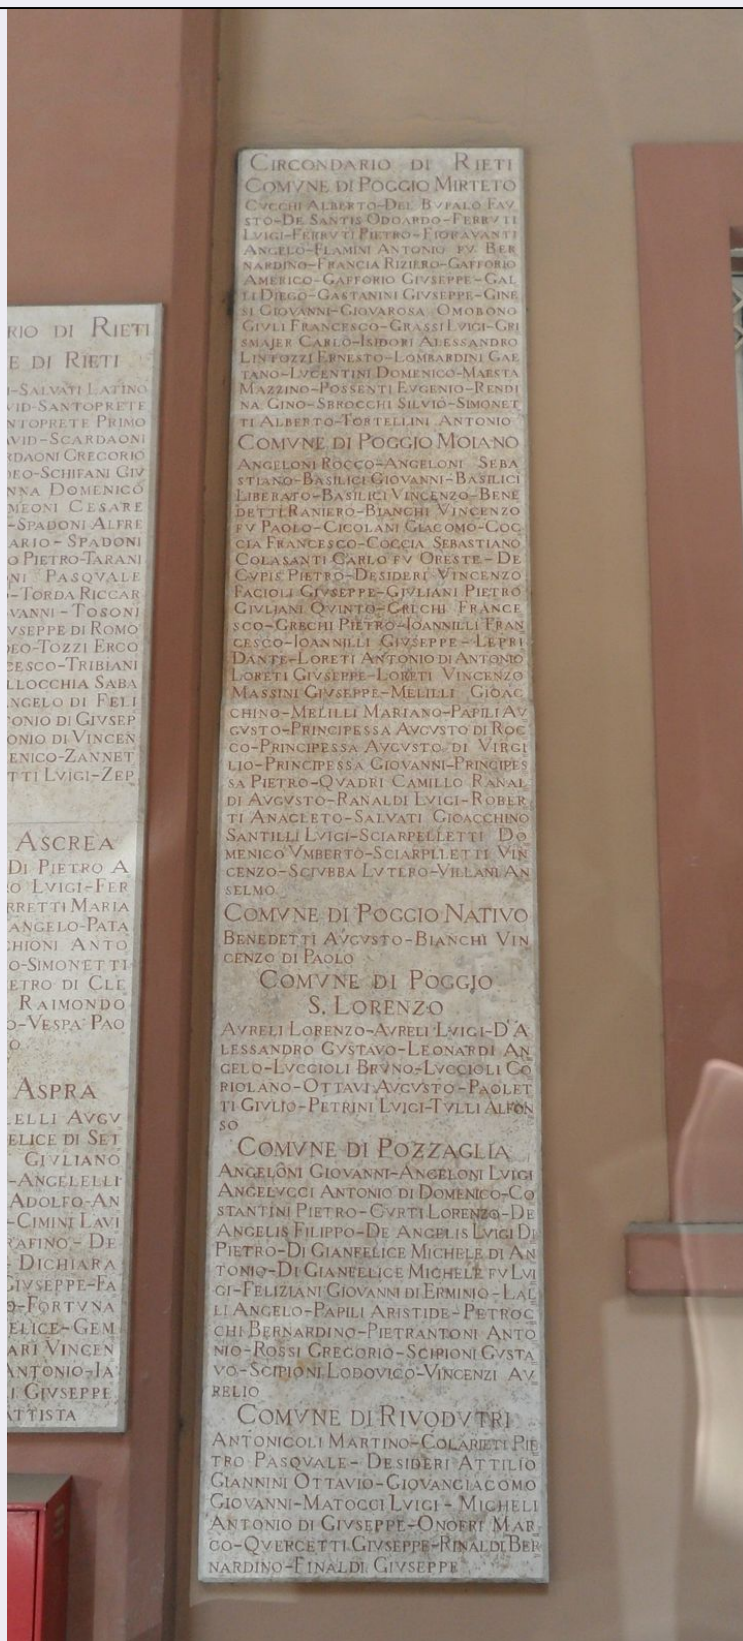 RIO DI RIETI
E DI RIETI
I-SALVATI LATINO
VID-SANTOPRETE
NTOPRETE PRIMO
AVID-SCARDAONI
RDAONI GREGORIO
DEO-SCHIFANI GIV
NNA DOMENICO
MEONI CESARE
-SPADONI ALFRE
ARIO-SPADONI
O PIETRO-TARANI
NI PASQVALE
-TORDA RICCAR
VANNI-TOSONI
VSEPPE DI ROMO
DEO-TOZZI ERCO
CESCO-TRIBIANI
LLOCCHIA SABA
NGELO DI FELI
TONIO DI GIVSEP
ONIO DI VINCEN
ENICO-ZANNET
TTI LVIGI-ZEP
ASCREA
DI PIETRO A
O LVIGI-FER
RRETTI MARIA
ANGELO-PATA
CHIONI ANTO
O-SIMONETTI
ETRO DI CLE
RAIMONDO
O-VESPA PAO
O
ASPRA
ELLI AVGV
ELICE DI SET
GIVLIANO
-ANGELELLI
ADOLFO-AN
-CIMINI LAVI
RAFINO-DE
DICHIARA
GIVSEPPE-FA
O-FORTVNA
ELICE-GEM
ARI VINCEN
ANTONIO-IA
I GIVSEPPE
ATTISTA
CIRCONDARIO DI RIETI
COMVNE DI POGGIO MIRTETO
CVCCHI ALBERTO-DEL BVFALO FAV
STO-DE SANTIS ODOARDO-FERRVTI
LVIGI-FERRVTI PIETRO-FIORAVANTI
ANGELO-FLAMINI ANTONIO FV BER
NARDINO-FRANCIA RIZIERO-GAFFORIO
AMERICO-GAFFORIO GIVSEPPE-GAL
LI DIEGO-GASTANINI GIVSEPPE-GINE
SI GIOVANNI-GIOVAROSA OMOBONO
GIVLI FRANCESCO-GRASSI LVIGI-GRI
SMAJER CARLO-ISIDORI ALESSANDRO
LINTOZZI ERNESTO-LOMBARDINI GAE
TANO-LVCENTINI DOMENICO-MAESTA
MAZZINO-POSSENTI EVGENIO-RENDI
NA GINO-SBROCCHI SILVIO-SIMONET
TI ALBERTO-TORTELLINI ANTONIO
COMVNE DI POGGIO MOIANO
ANGELONI ROCCO-ANGELONI SEBA
STIANO-BASILICI GIOVANNI-BASILICI
LIBERATO-BASILICI VINCENZO-BENE
DETTI RANIERO-BIANCHI VINCENZO
FV PAOLO-CICOLANI GIACOMO-COC
CIA FRANCESCO-COCCIA SEBASTIANO
COLASANTI CARLO FV ORESTE-DE
CVPIS PIETRO-DESIDERI VINCENZO
FACIOLI GIVSEPPE-GIVLIANI PIETRO
GIVLIANI QVINTO-GRECHI FRANCE
SCO-GRECHI PIETRO-IOANNILLI FRAN
CESCO-IOANNILLI GIVSEPPE-LEPRI
DANTE-LORETI ANTONIO DI ANTONIO
LORETI GIVSEPPE-LORETI VINCENZO
MASSINI GIVSEPPE-MELILLI GIOAC
CHINO-MELILLI MARIANO-PAPILI AV
GVSTO-PRINCIPESSA AVGVSTO DI ROC
CO-PRINCIPESSA AVGVSTO DI VIRGI
LIO-PRINCIPESSA GIOVANNI-PRINCIPES
SA PIETRO-QVADRI CAMILLO RANAL
DI AVGVSTO-RANALDI LVIGI-ROBER
TI ANACLETO-SALVATI GIOACCHINO
SANTILLI LVIGI-SCIARPELLETTI DO
MENICO VMBERTO-SCIARPLLETTI VIN
CENZO-SCIVBBA LVTERO-VILLANI AN
SELMO
COMVNE DI POGGIO NATIVO
BENEDETTI AVGVSTO-BIANCHI VIN
CENZO DI PAOLO
COMVNE DI POGGIO
S. LORENZO
AVRELI LORENZO-AVRELI LVIGI-D'A
LESSANDRO GVSTAVO-LEONARDI AN
GELO-LVCCIOLI BRVNO-LVCCIOLI CO
RIOLANO-OTTAVI AVGVSTO-PAOLET
TI GIVLIO-PETRINI LVIGI-TVLLI ALFON
SO
COMVNE DI POZZAGLIA
ANGELONI GIOVANNI-ANGELONI LVIGI
ANGELVCCI ANTONIO DI DOMENICO-CO
STANTINI PIETRO-CVRTI LORENZO-DE
ANGELIS FILIPPO-DE ANGELIS LVIGI DI
PIETRO-DI GIANFELICE MICHELE DI AN
TONIO-DI GIANFELICE MICHELE FV LVI
GI-FELIZIANI GIOVANNI DI ERMINIO-LAL
LI ANGELO-PAPILI ARISTIDE-PETROC
CHI BERNARDINO-PIETRANTONI ANTO
NIO-ROSSI GREGORIO-SCIPIONI GVSTA
VO-SCIPIONI LODOVICO-VINCENZI AV
RELIO
COMVNE DI RIVODVTRI
ANTONICOLI MARTINO-COLARIETI PIE
TRO PASQVALE-DESIDERI ATTILIO
GIANNINI OTTAVIO-GIOVANGIACOMO
GIOVANNI-MATOCCI LVIGI-MICHELI
ANTONIO DI GIVSEPPE-ONOFRI MAR
CO-QVERCETTI GIVSEPPE-RINALDI BER
NARDINO-FINALDI GIVSEPPE